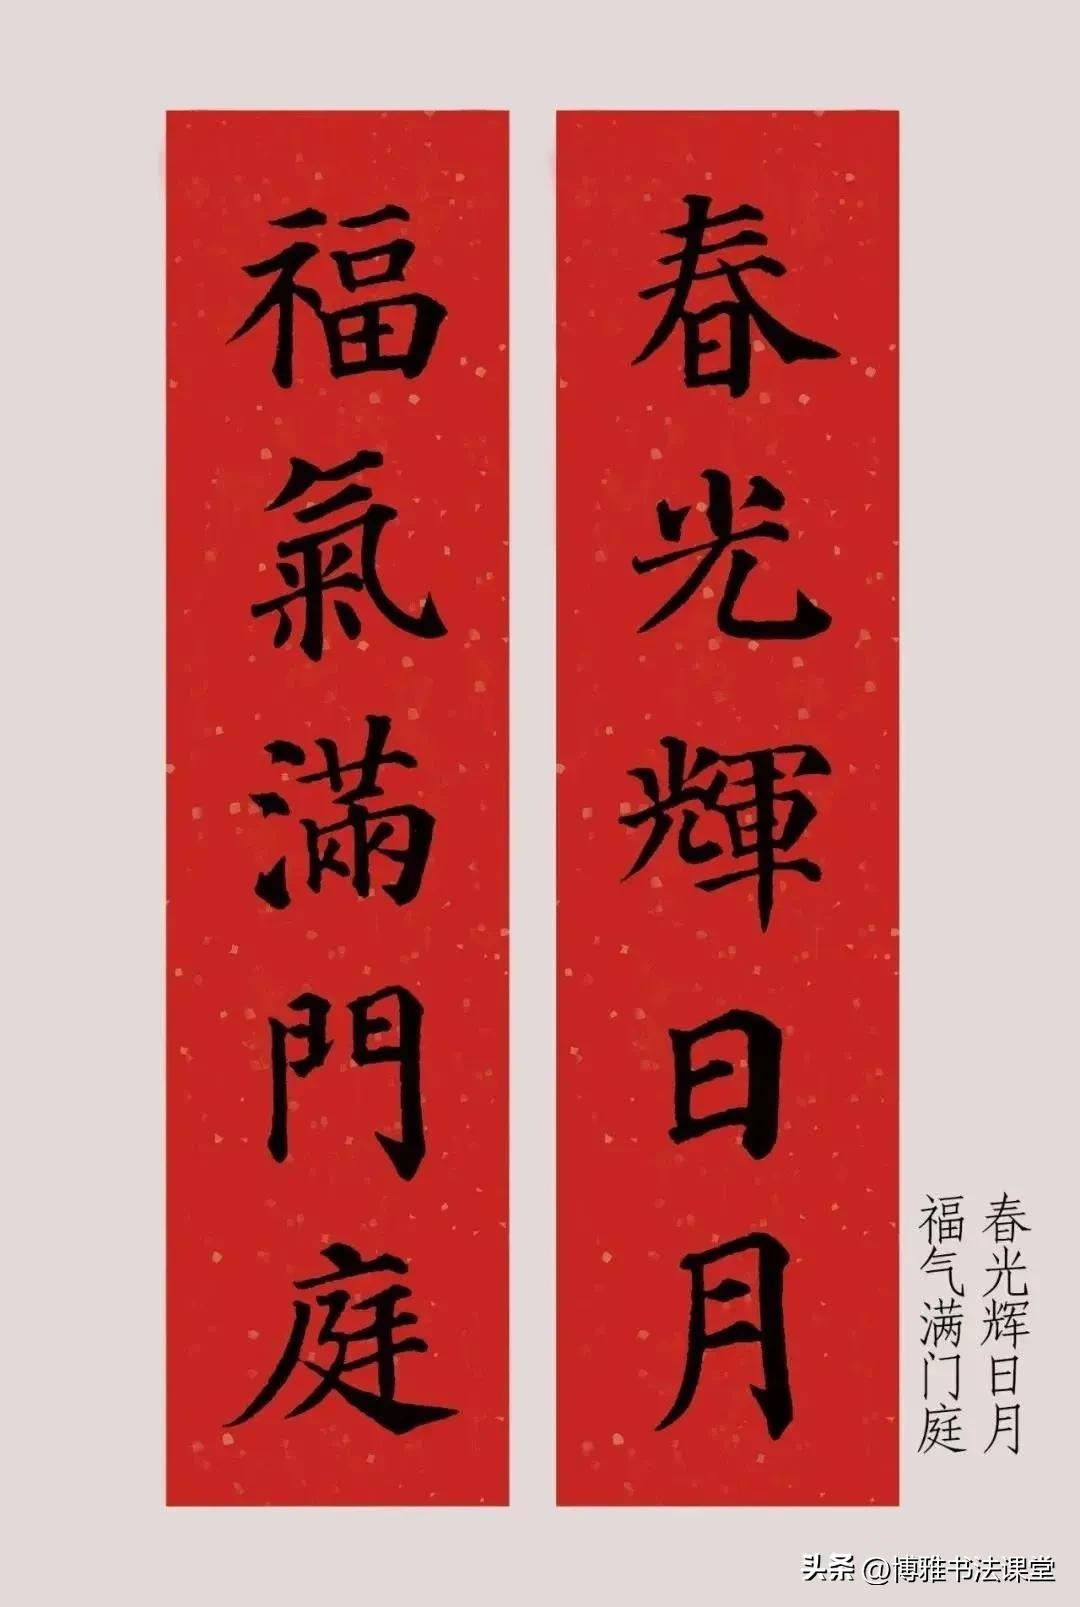 春光輝日月
福氣滿門庭
春光辉日月
福气满门庭
头条 @博雅书法课堂